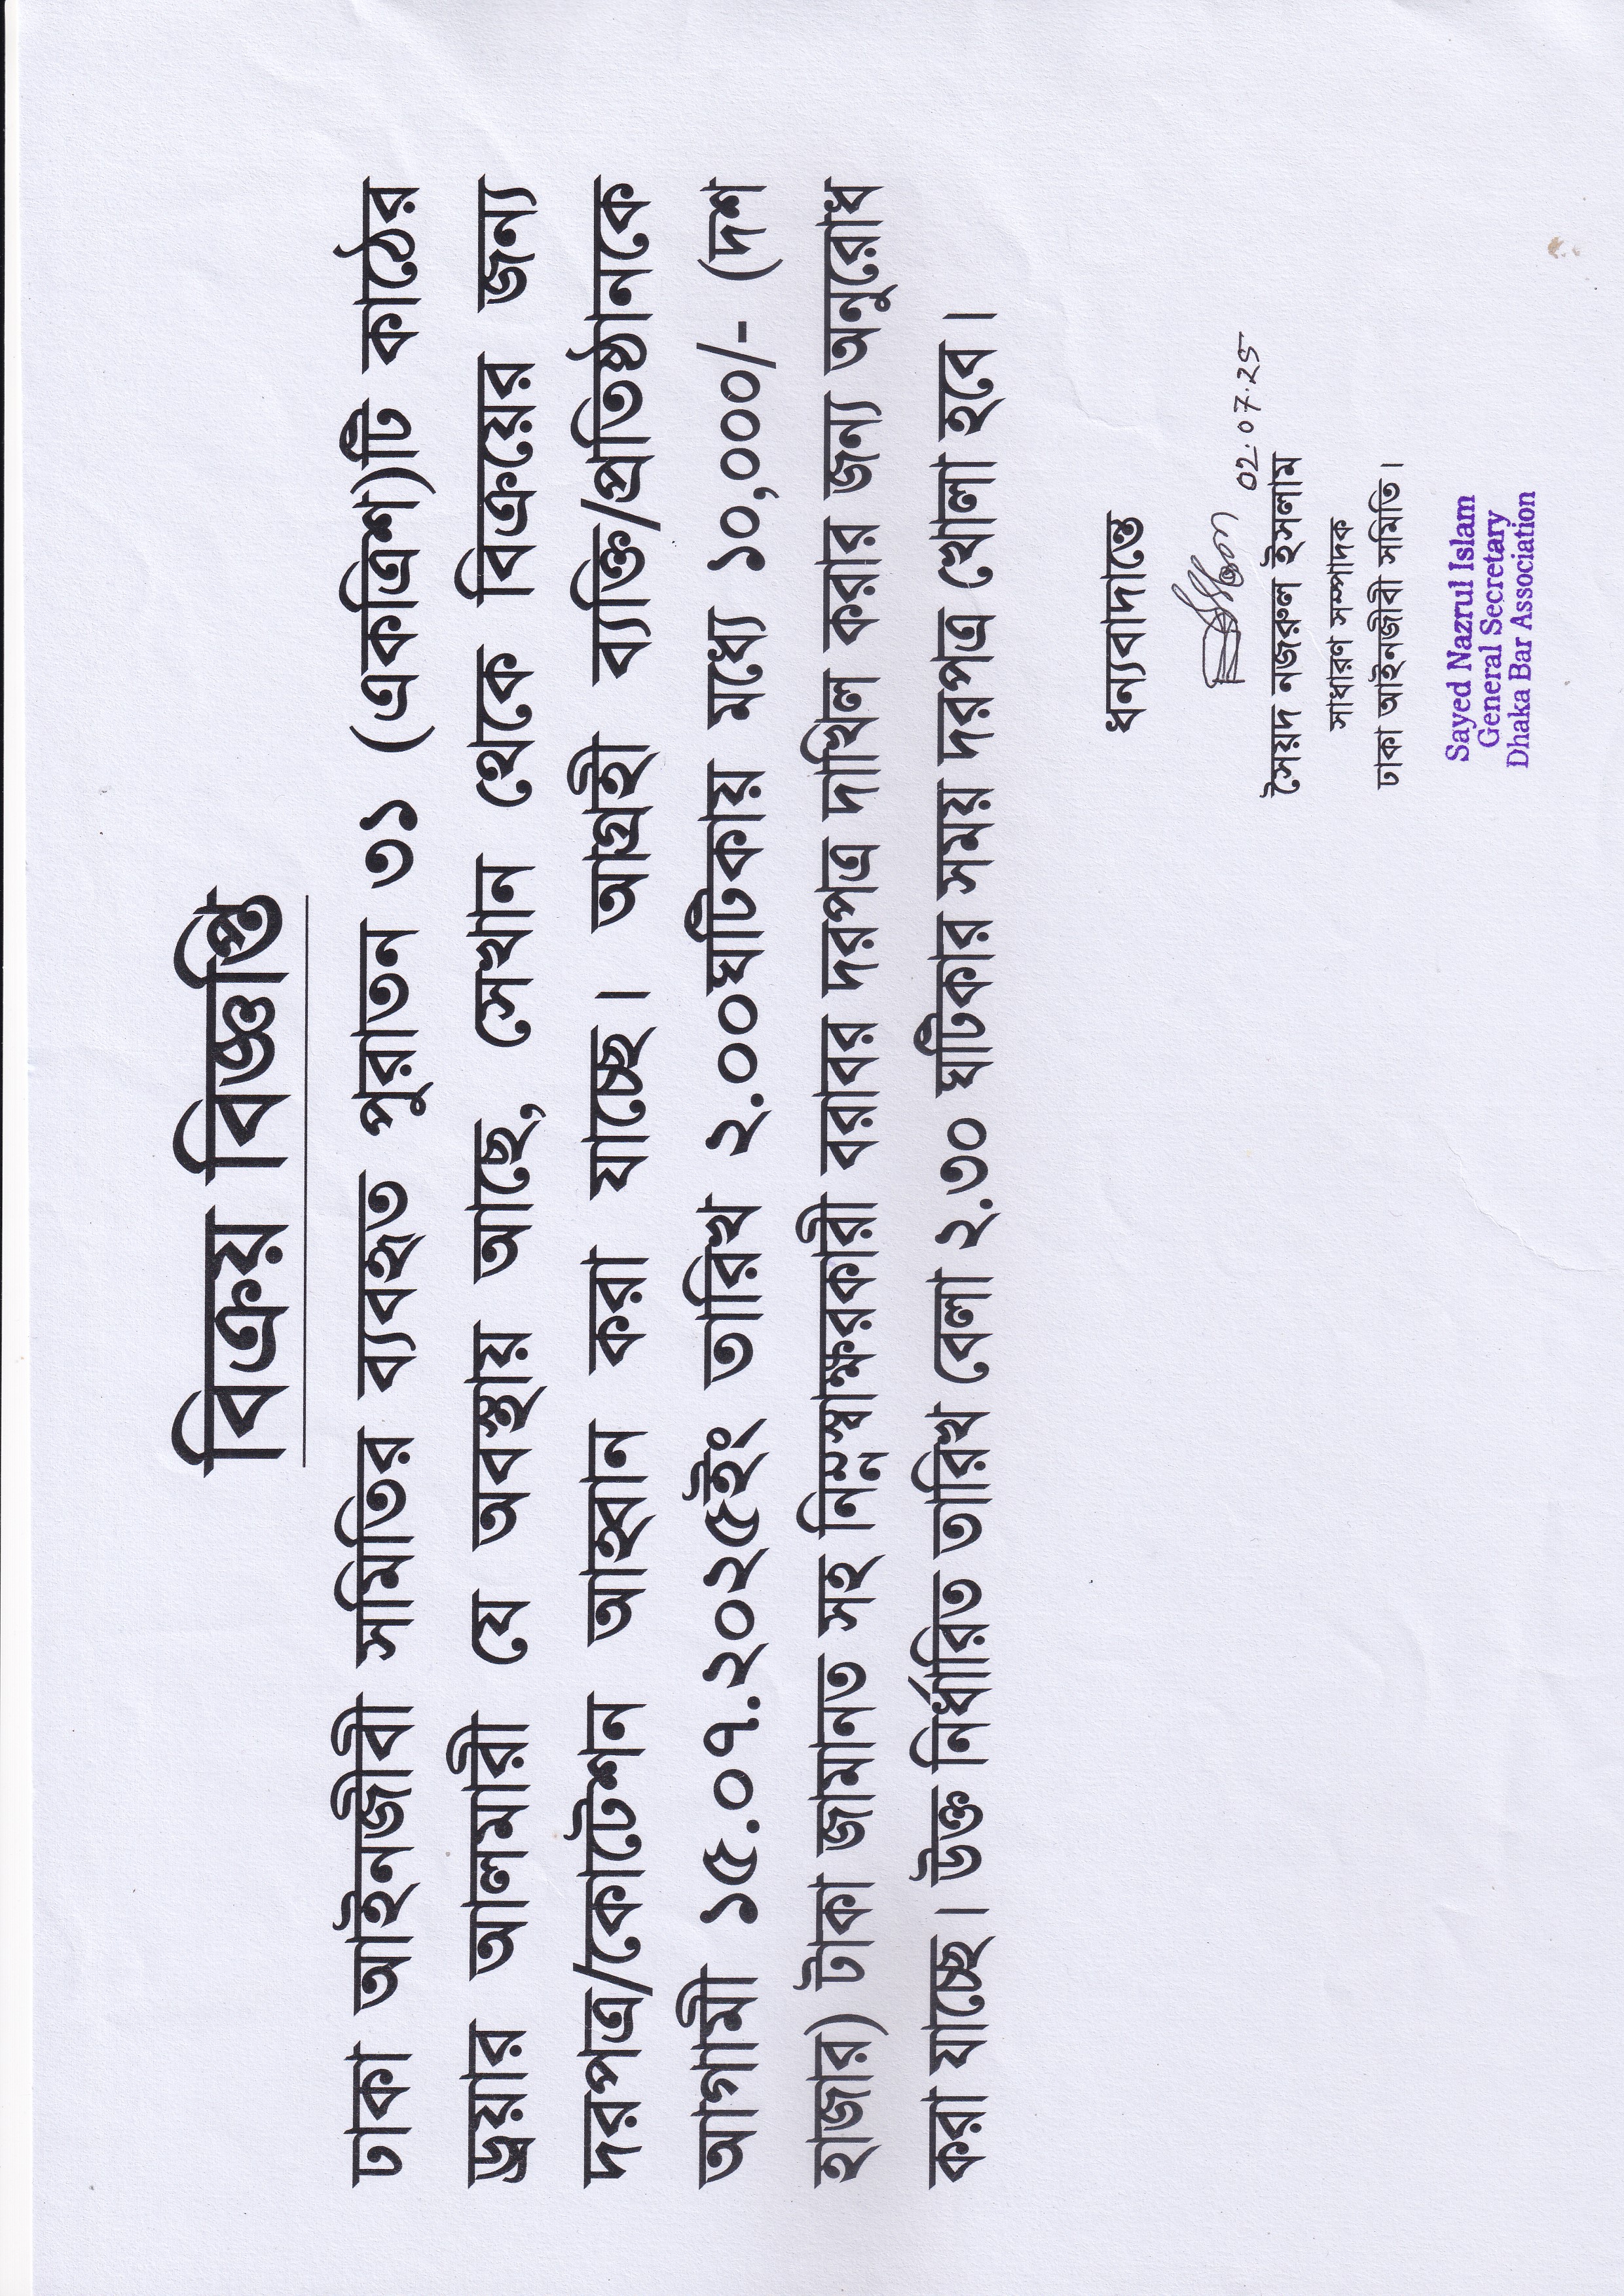 বিক্রয় বিজ্ঞপ্তি
ঢাকা আইনজীবী সমিতির ব্যবহৃত পুরাতন ৩১ (একত্রিশ)টি কাঠের
ড্রয়ার আলমারী যে অবস্থায় আছে, সেখান থেকে বিক্রয়ের জন্য
দরপত্র/কোটেশন আহ্বান করা যাচ্ছে। আগ্রহী ব্যক্তি/প্রতিষ্ঠানকে
আগামী ১৫.০৭.২০২৫ইং তারিখ ২.০০ঘটিকায় মধ্যে ১০,০০০/- (দশ
হাজার) টাকা জামানত সহ নিম্নস্বাক্ষরকারী বরাবর দরপত্র দাখিল করার জন্য অনুরোধ
করা যাচ্ছে। উক্ত নির্ধারিত তারিখ বেলা ২.৩০ ঘটিকার সময় দরপত্র খোলা হবে।
ধন্যবাদান্তে
02.07.25
সৈয়দ নজরুল ইসলাম
সাধারণ সম্পাদক
ঢাকা আইনজীবী সমিতি।
Sayed Nazrul Islam
General Secretary
Dhaka Bar Association